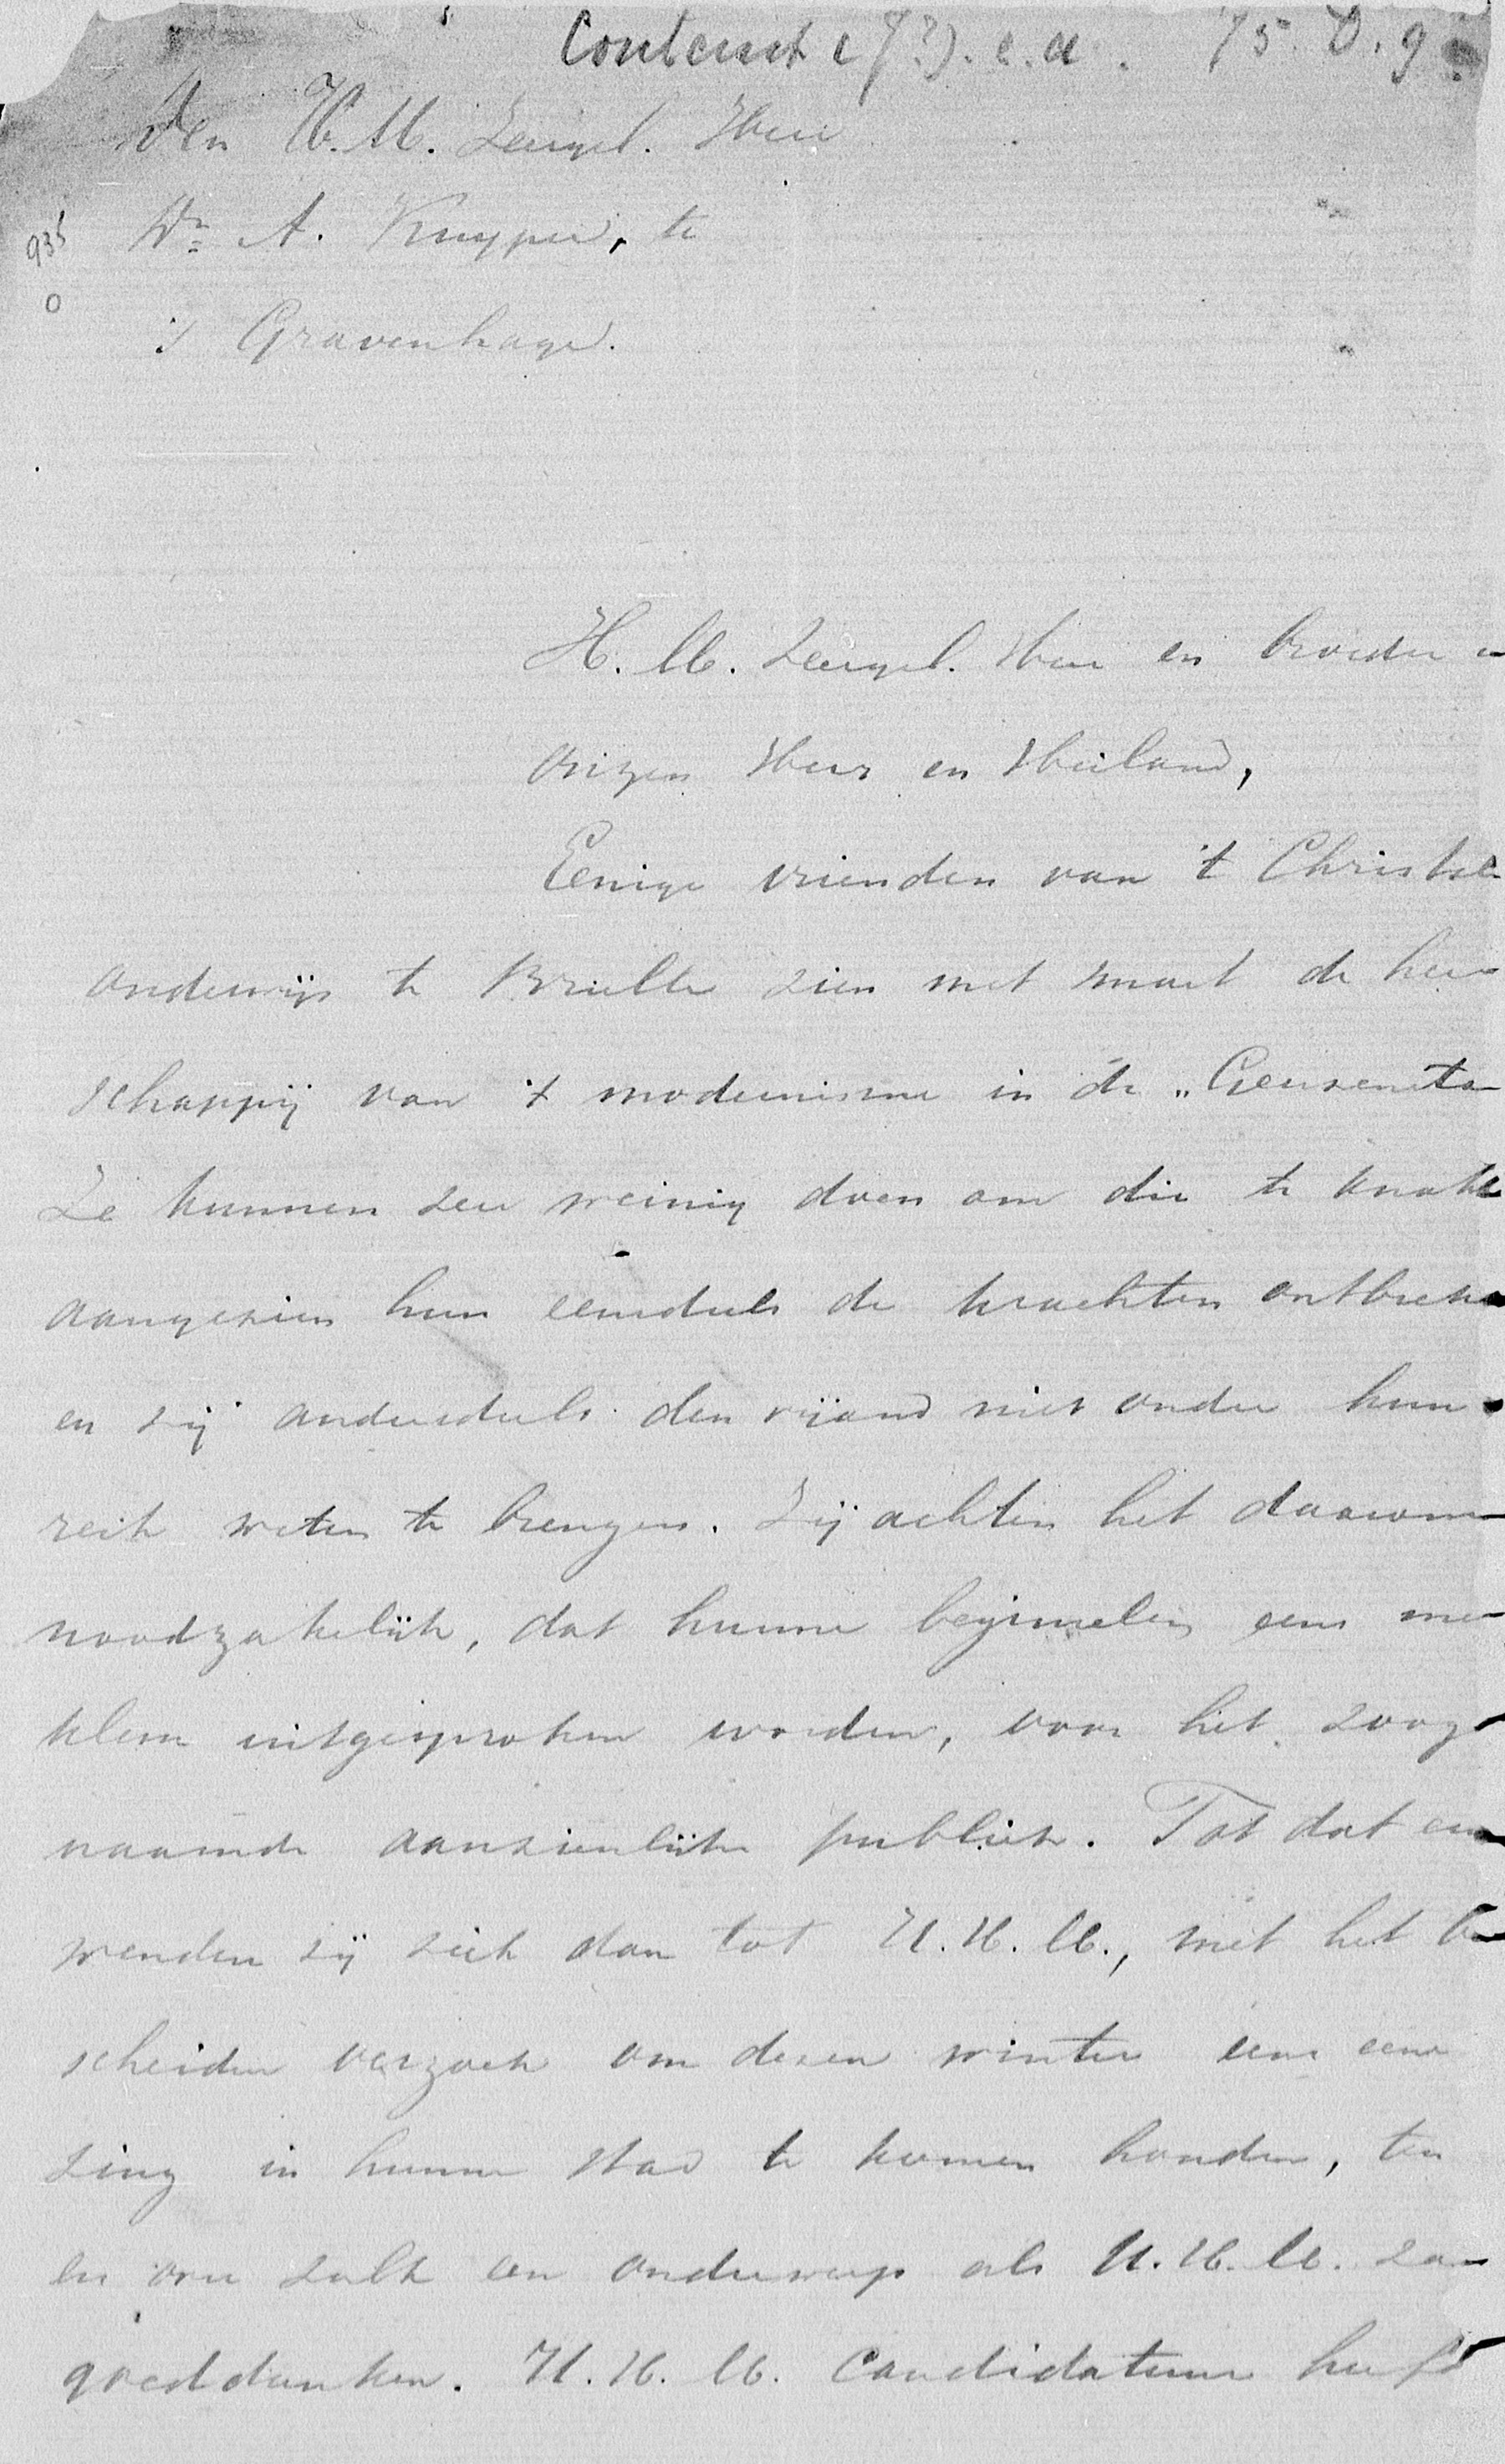 75. D. g
Den H. M. Zeergel. Heer
Dr. A. Kuyper, te
935
0
's Gravenhage.
H. M. Zeergel. Heer en broeder
onzen Heer en Heiland,
Eenige vrienden van 't Christe
onderwijs te Brielle zien met smart de heer
schappij van 't modernisme in de „Geuzenst
Ze kunnen zeer weinig doen om die te knakke
aangezien hun eensdeels de krachten ontbreke
en zij anderdeels den vijand niet onder hun
reik weten te brengen. Zij achten het daarom
noodzakelijk, dat hunne beginselen eens me
klem uitgesproken worden, voor het zooge
naamde aanzienlijke publiek. Tot dat ein
wenden zij zich dan tot U. H. M., met het be
scheiden verzoek om dezen winter eens eene
zing in hunne stad te komen houden, ten
en over zulk een onderwerp als U. H. M. za
goeddunken. U. H. M. Candidatuur heeft